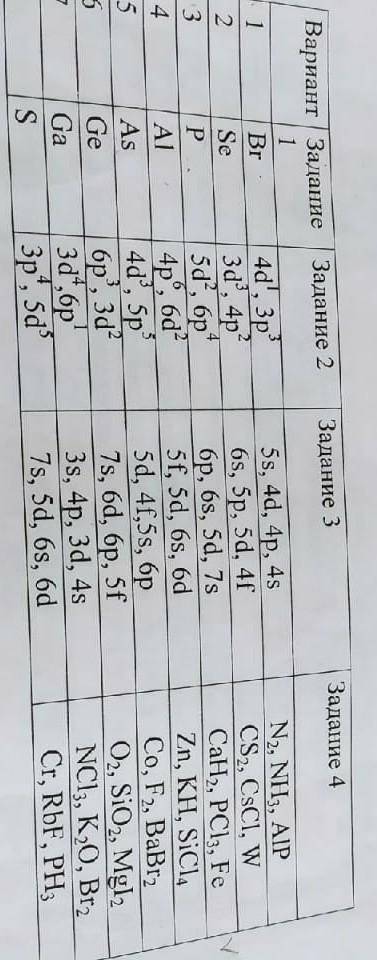 Вариант Задание 1 Задание 2 Задание 3 Задание 4
1 Br 4d¹, 3p³ 5s, 4d, 4p, 4s N₂, NH₃, AlP
2 Se 3d³, 4p² 6s, 5p, 5d, 4f CS₂, CsCl, W
3 P 5d², 6p⁴ 6p, 6s, 5d, 7s CaH₂, PCl₃, Fe
4 Al 4p⁶, 6d² 5f, 5d, 6s, 6d Zn, KH, SiCl₄
5 As 4d³, 5p³ 5d, 4f, 5s, 6p Co, F₂, BaBr₂
6 Ge 6p³, 3d² 7s, 6d, 6p, 5f O₂, SiO₂, MgI₂
7 Ga 3d⁴, 6p¹ 3s, 4p, 3d, 4s NCl₃, K₂O, Br₂
S 3p⁴, 5d⁵ 7s, 5d, 6s, 6d Cr, RbF, PH₃